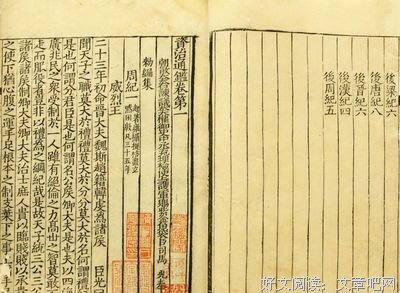 後梁紀六
後唐紀八
後晉紀六
後漢紀四
後周紀五
資治通鑑卷第一
朝散大夫右諫議大夫權御史中丞充理檢使上護軍賜紫金魚袋臣司馬光奉
勑編集
周紀一
起著雍攝提格盡玄黓
困敦凡三十五年
威烈王
二十三年初命晉大夫魏斯趙籍韓虔爲諸侯 臣光
聞天子之職莫大於禮禮莫大於分分莫大於名何謂禮
是也何謂分君臣是也何謂名公侯卿大夫是也夫以四海
廣兆民之衆受制於一人雖有絕倫之力高世之智莫敢
走而服役者豈非以禮爲之綱紀哉是故天子統三公三公
諸侯諸侯制卿大夫卿大夫治士庶人貴以臨賤賤以承貴
之使下猶心腹之運手足根本之制支葉下之事上猶手
好文阅读：文章吧网